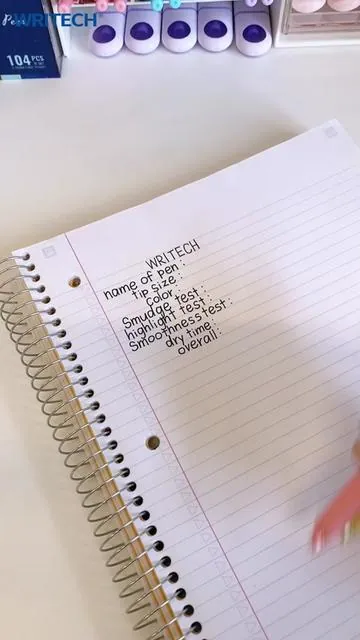 Pen
WRITECH®
104 PCS
WRITECH
name of pen:
tip size:
color:
Smudge test:
highlight test:
Smoothness test:
dry time:
overall: